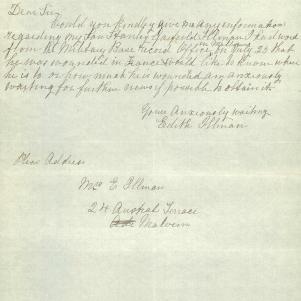 Dear Sir
Could you kindly give me any information
regarding my Son Stanley Fairfield Illman I had word
from the Military Base Record Office Melbourne on July 23 that
he was wounded in France would like to know where
he is to or how much he is wounded am anxiously
waiting for further news if possible to obtain it
Yours Anxiously waiting
Edith Illman
Address
Mrs E Illman
24 Austral Terrace
Malvern